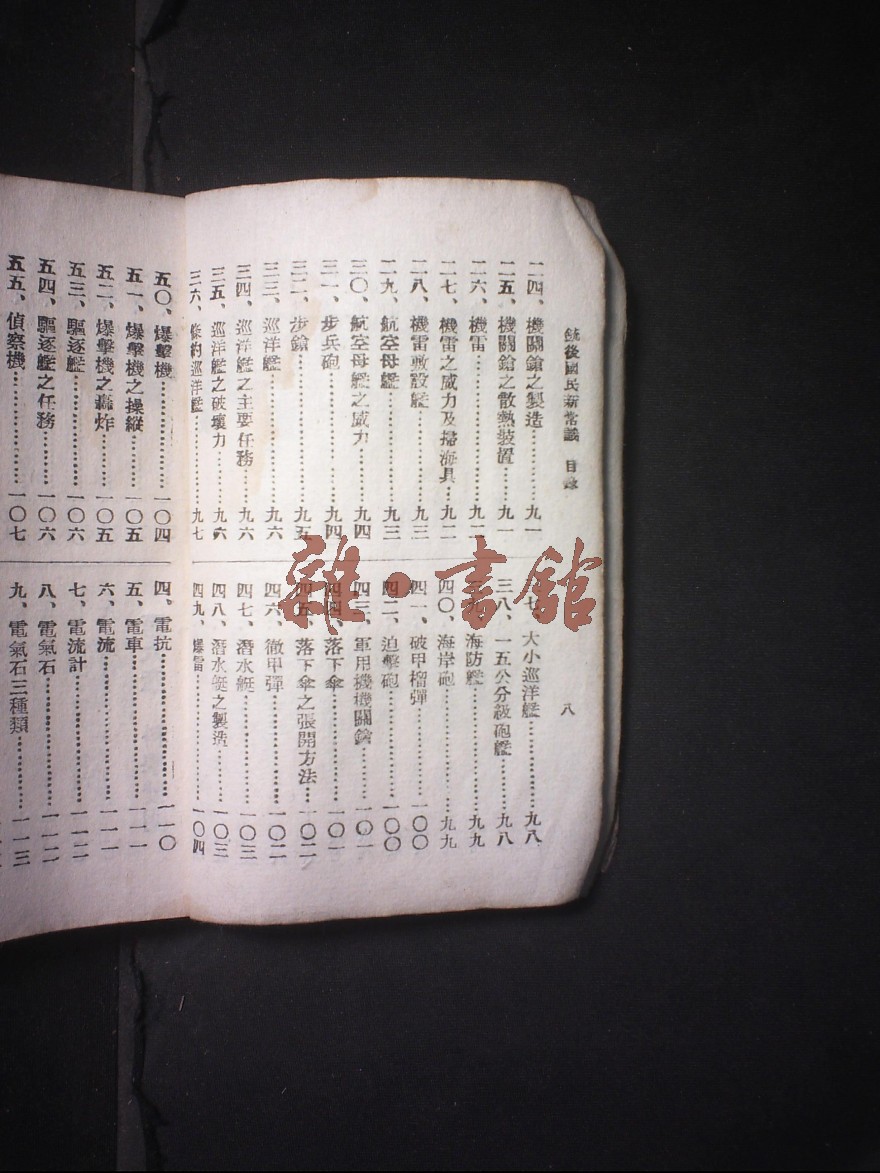 銃後國民新常識 目錄 八
二四、機關鎗之製造…………九一
二五、機關鎗之散熱裝置………九一
二六、機雷…………九二
二七、機雷之威力及掃海具…九二
二八、機雷敷設艦…………九三
二九、航空母艦…………九三
三〇、航空母艦之威力………九四
三一、步兵砲…………九四
三二、步鎗…………九五
三三、巡洋艦…………九六
三四、巡洋艦之主要任務………九六
三五、巡洋艦之破壞力………九六
三六、條約巡洋艦…………九七
七、大小巡洋艦…………九八
三八、一五公分級砲艦………九八
海防艦…………九九
四〇、海岸砲…………九九
四一、破甲榴彈…………一〇〇
四二、迫擊砲…………一〇〇
四三、軍用機機關鎗………一〇一
四四、落下傘…………一〇一
四五、落下傘之張開方法…一〇二
四六、徹甲彈…………一〇二
四七、潛水艇…………一〇三
四八、潛水艇之製造………一〇三
四九、爆雷…………一〇四
五〇、爆擊機…………一〇四
五一、爆擊機之操縱………一〇五
五二、爆擊機之轟炸………一〇五
五三、驅逐艦…………一〇六
五四、驅逐艦之任務………一〇六
五五、偵察機…………一〇七
四、電抗…………一一〇
五、電車…………一一一
六、電流…………一一一
七、電流計…………一一二
八、電氣石…………一一二
九、電氣石三種類………一一三
雜·書館